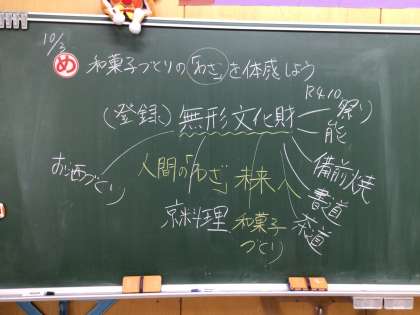 10/3
め 和菓子づくりの「わざ」を体感しよう
R4.10
(登録) 無形文化財
祭り
能
備前焼
書道
茶道
お酒づくり
人間の「わざ」 未来へ
京料理
和菓子
づくり